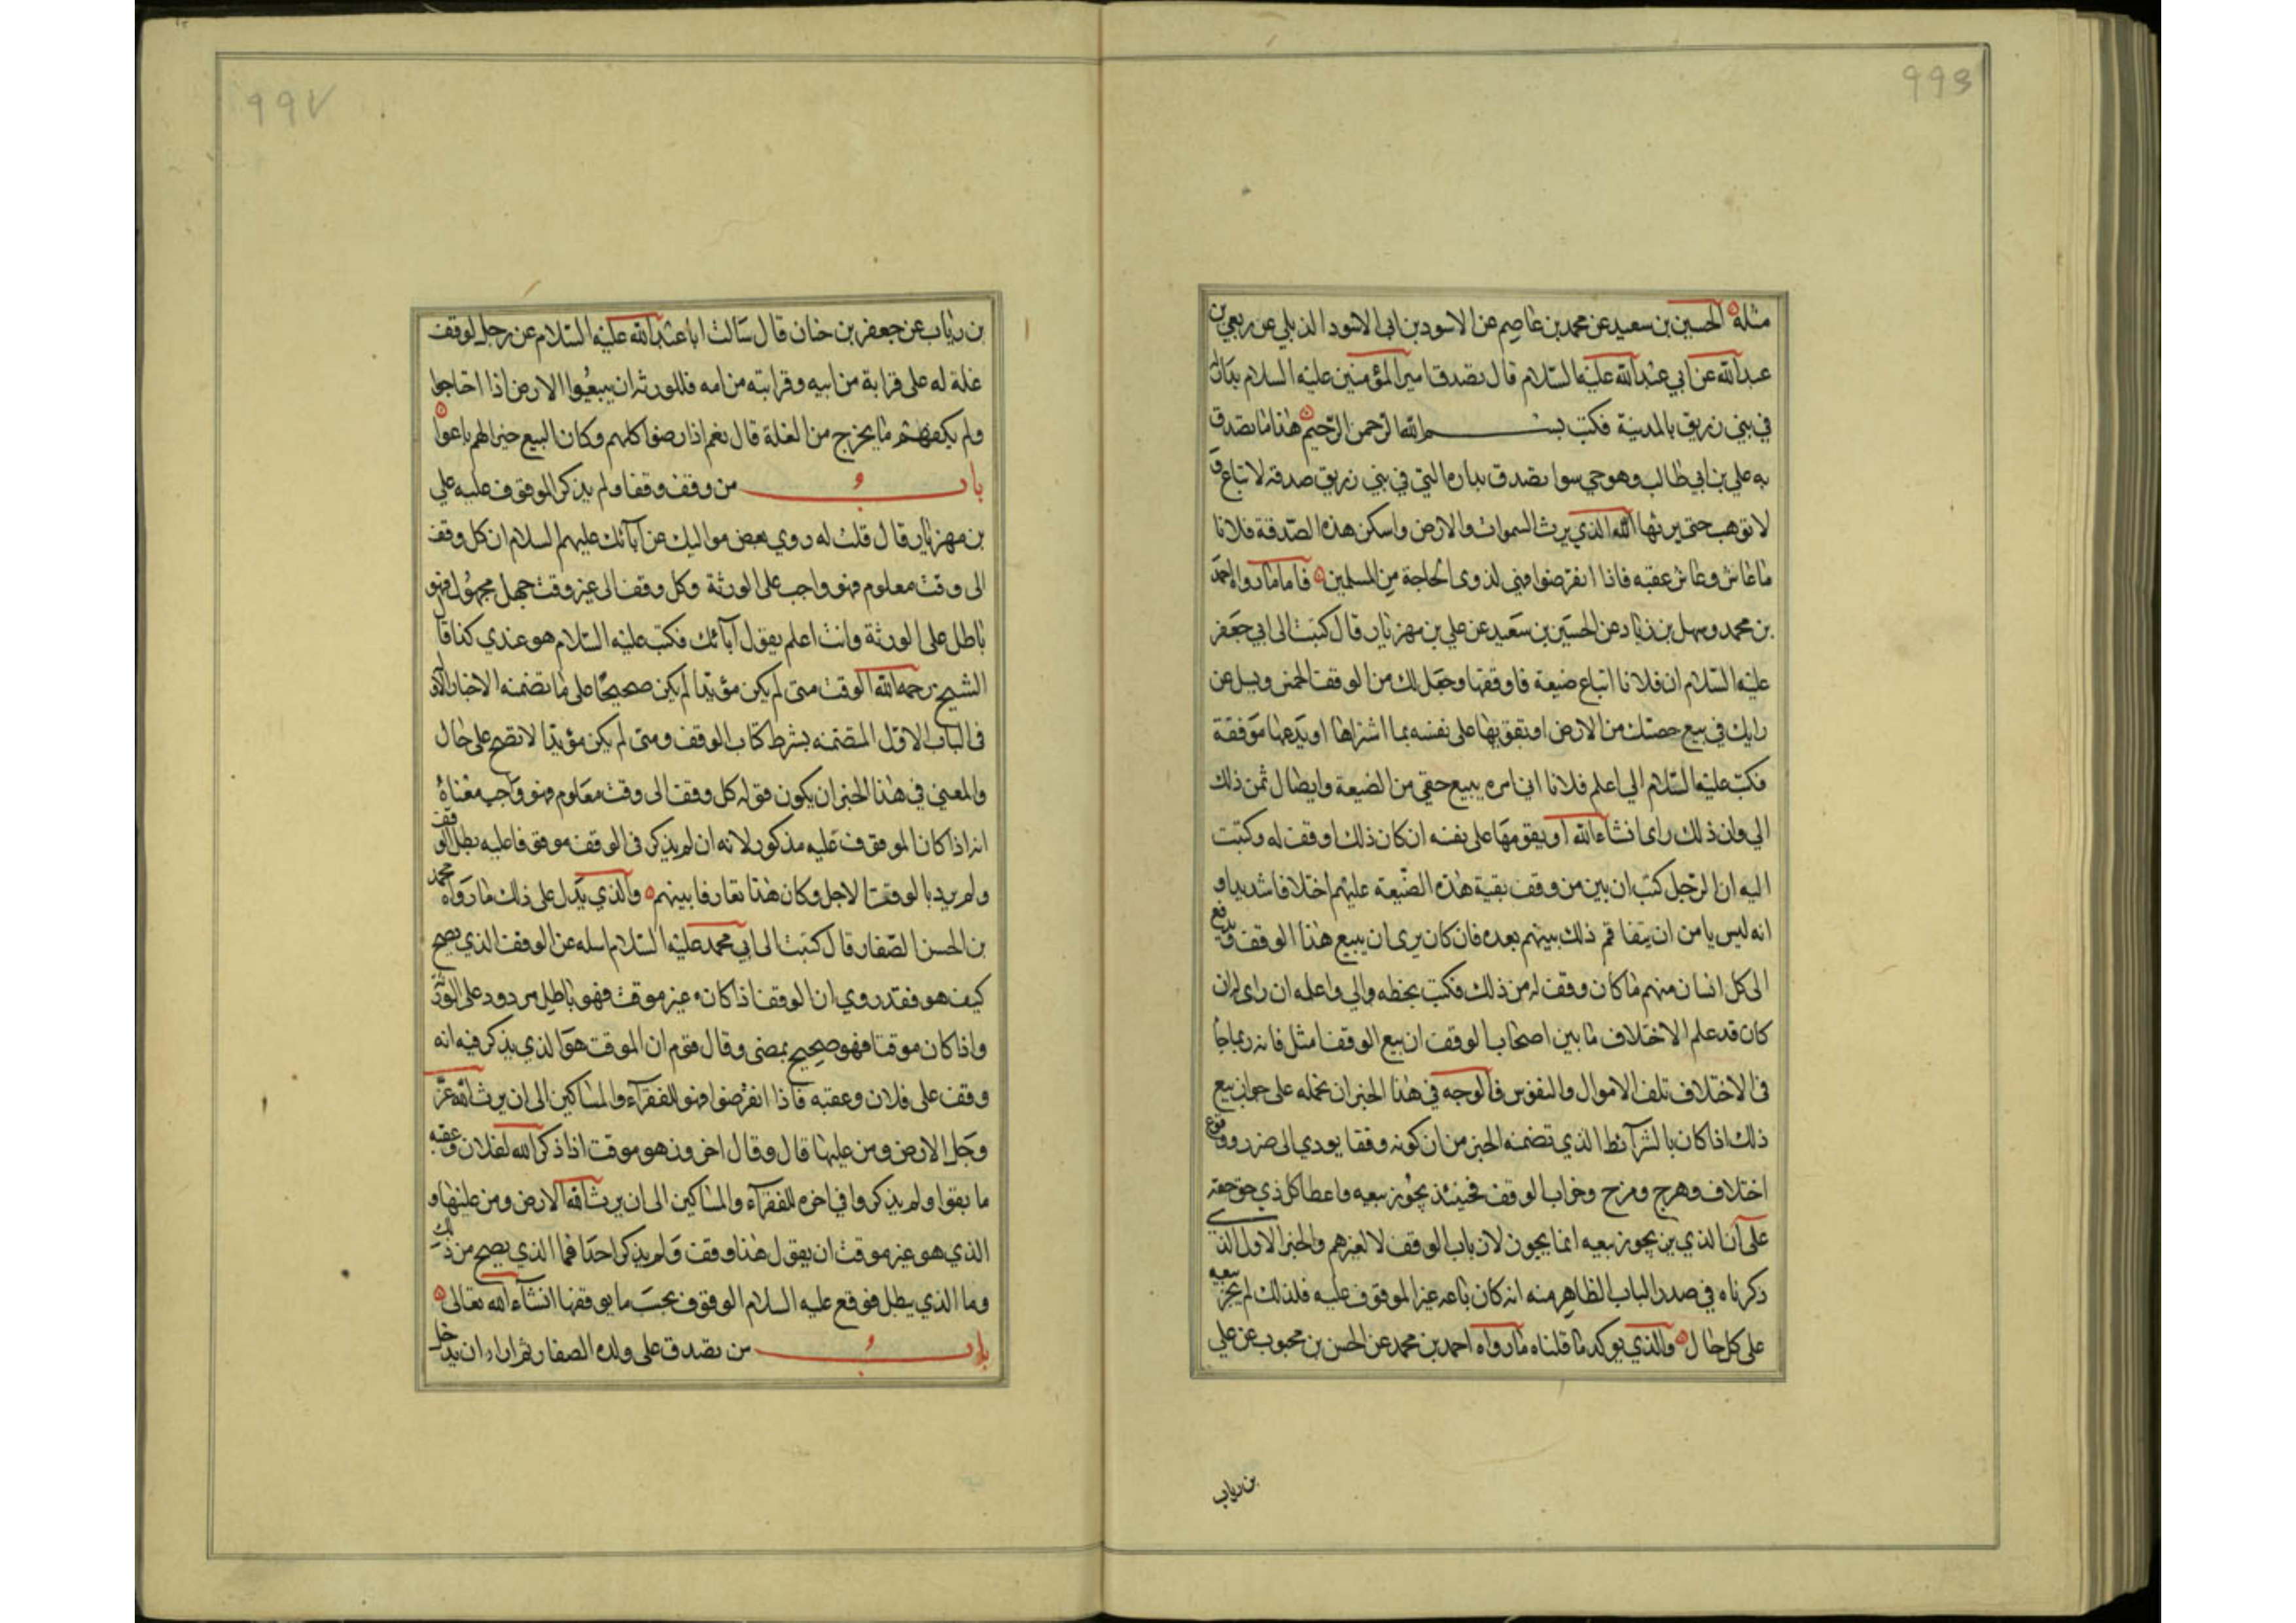 ۹۹۶
مثله الحسين بن سعيد عن محمد بن عاصم عن الاسود بن ابي الاسود الدئلي عن ربعي بن
عبد الله عن ابي عبد الله عليه السلام قال تصدق امير المؤمنين عليه السلام بدار له
في بني زريق بالمدينة فكتب بسم الله الرحمن الرحيم هذا ما تصدق
به علي بن ابي طالب وهو حي سوا تصدق بداره التي في بني زريق صدقة لا تباع و
لا توهب حتى يرثها الله الذي يرث السموات والارض واسكن هذه الصدقة فلانا
ما عاش وعاش عقبه فاذا انقرضوا فهي لذوى الحاجة من المسلمين فاما ما رواه احمد
بن محمد وسهل بن زياد عن الحسين بن سعيد عن علي بن مهزيار قال كتبت الى ابي جعفر
عليه السلام ان فلانا ابتاع ضيعة فاوقفها وجعل لك من الوقف الخمس ويسل عن
رايك في بيع حصتك من الارض او تقويها على نفسه بما اشتراها او يدعها موقفة
فكتب عليه السلام الي اعلم فلانا اني امره ببيع حقي من الضيعة وايصال ثمن ذلك
الي وان ذلك راى انشاء الله او يقومها على نفسه ان كان ذلك اوفق له وكتبت
اليه ان الرجل كتب ان بين من وقف بقية هذه الضيعة عليهم اختلافا شديدا و
انه ليس يامن ان يتفاقم ذلك بينهم بعده فان كان يرى ان يبيع هذا الوقف ويدفع
الى كل انسان منهم ما كان وقف له من ذلك فكتب بخطه والي واعلمه ان راى له ان
كان قد علم الاختلاف ما بين اصحاب الوقف ان بيع الوقف امثل فانه ربما جا
في الاختلاف تلف الاموال والنفوس فالوجه في هذا الخبر ان نحمله على جواز بيع
ذلك اذا كان بالشرائط الذي تضمنه الخبر من ان كونه وقفا يودي الى ضرر ووقوع
اختلاف وهرج ومرج وخراب الوقف فحينئذ يجوز بيعه واعطا كل ذي حق حقه
على ان الذي يجوز بيعه انما يجوز لارباب الوقف لا لغيرهم والخبر الاول الذي
ذكرناه في صدر الباب الظاهر منه انه كان باعه غير الموقوف عليه فلذلك لم يجز بيعه
على كل حال والذي يوكد ما قلناه ما رواه احمد بن محمد عن الحسن بن محبوب عن علي
بن رياب
۹۹۷
بن رياب عن جعفر بن حنان قال سالت ابا عبد الله عليه السلام عن رجل اوقف
غلة له على قرابة من ابيه وقرابته من امه فللورثه ان يبيعوا الارض اذا احتاجوا
ولم يكفهم ما يخرج من الغلة قال نعم اذا رضوا كلهم وكان البيع خيرا لهم باعوا
باب من وقف وقفا ولم يذكر الموقوف عليه علي
بن مهزيار قال قلت له روى بعض مواليك عن آبائك عليهم السلام ان كل وقف
الى وقت معلوم فهو واجب على الورثة وكل وقف الى غير وقت جهل مجهول فهو
باطل على الورثة وانت اعلم بقول آبائك فكتب عليه السلام هو عندي كذا قال
الشيخ رحمه الله الوقف متى لم يكن مؤبدا لم يكن صحيحا على ما تضمنه الاخبار الاوله
في الباب الاول المتضمنه بشرط كتاب الوقف ومتى لم يكن مؤبدا لا تصح على حال
والمعنى في هذا الخبر ان يكون قوله كل وقف الى وقت معلوم فهو واجب معناه
انه اذا كان الموقوف عليه مذكورا لانه ان لم يذكر في الوقف موقوفا عليه بطل الوقف
ولم يرد بالوقت الاجل وكان هذا تعارفا بينهم والذي يدل على ذلك ما رواه محمد
بن الحسن الصفار قال كتبت الى ابي محمد عليه السلام اسله عن الوقف الذي يصح
كيف هو فقد روي ان الوقف اذا كان غير موقت فهو باطل مردود على الورثة
واذا كان موقتا فهو صحيح ممضى وقال قوم ان الموقت هو الذي يذكر فيه انه
وقف على فلان وعقبه فاذا انقرضوا فهو للفقرآء والمساكين الى ان يرث الله عز
وجل الارض ومن عليها قال وقال اخرون هو موقت اذا ذكر انه لفلان وعقبه
ما بقوا ولم يذكروا في اخره للفقرآء والمساكين الى ان يرث الله الارض ومن عليها و
الذي هو غير موقت ان يقول هذا وقف ولم يذكر احدا فما الذي يصح من ذلك
وما الذي يبطل فوقع عليه السلام الوقوف بحسب ما يوقفها انشاء الله تعالى
باب من تصدق على ولده الصغار ثم اراد ان يدخل